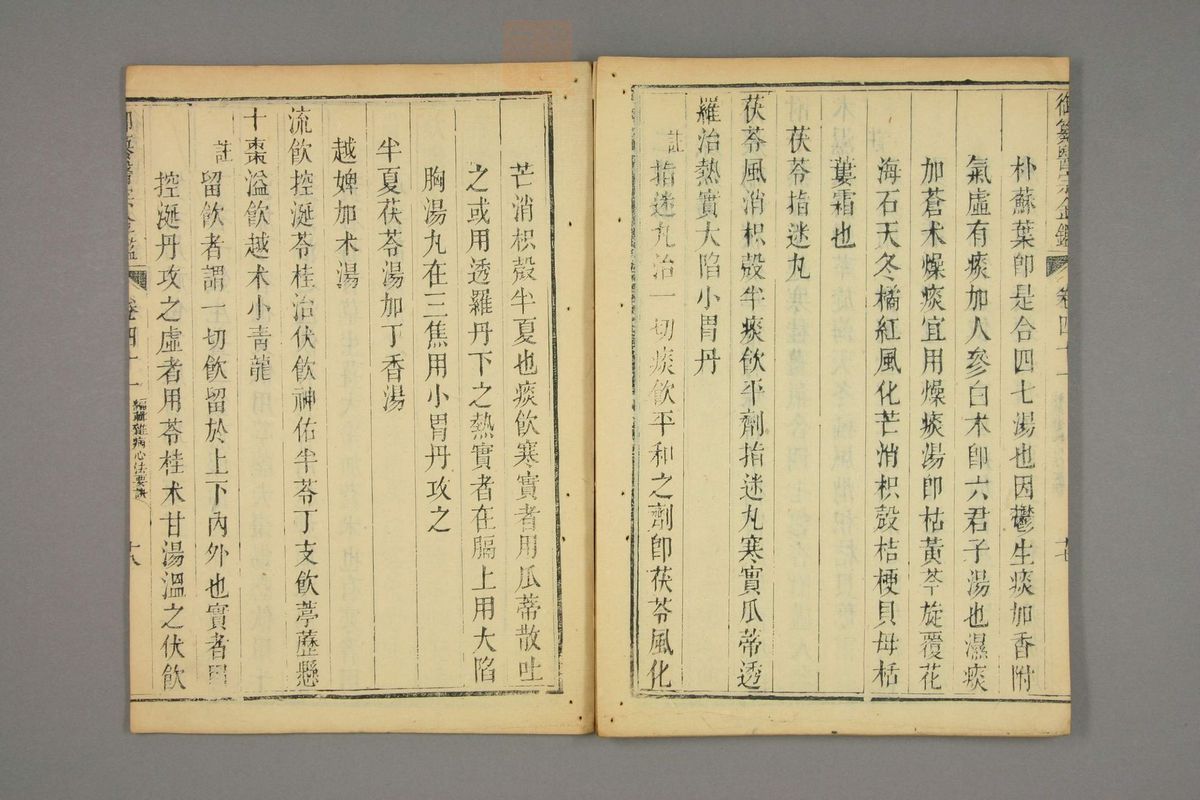 御纂醫宗金鑑 卷四十一
朴蘇葉卽是合四七湯也因鬱生痰加香附
氣虛有痰加人參白朮卽六君子湯也濕痰
加蒼朮燥痰宜用燥痰湯卽枯黃芩旋覆花
海石天冬橘紅風化芒消枳殼桔梗貝母栝
蔞霜也
茯苓指迷丸
茯苓風消枳殼半痰飲平劑指迷丸寒實瓜蒂透
羅治熱實大陷小胃丹
註
指迷丸治一切痰飲平和之劑卽茯苓風化
芒消枳殼半夏也痰飲寒實者用瓜蒂散吐
之或用透羅丹下之熱實者在膈上用大陷
胸湯丸在三焦用小胃丹攻之
半夏茯苓湯加丁香湯
越婢加朮湯
流飲控涎苓桂治伏飲神佑半苓丁支飲葶藶懸
十棗溢飲越朮小青龍
註
留飲者謂一切飲留於上下內外也實者用
控涎丹攻之虛者用苓桂朮甘湯溫之伏飲
御纂醫宗金鑑 卷四十一 編輯雜病心法要訣 十八